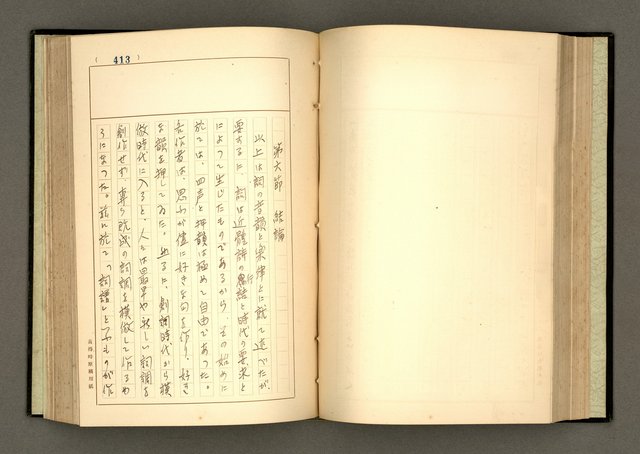 ( 413 )
第六節　結論
以上は詞の音韻と宋律とに就て述べたが、
要するに、詞は近體詩の
結と時代の要求と
によって生じたものであるから、その始めに
於ては、四声と押韻は極めて自由であった。
各作者は、思ふが儘に好きな句を作り、好き
な韻を押してゐた。然るに、創調時代から模
倣時代に入ると、人々は最早や新しい詞調を
創作せず、専ら既成の詞調を模倣して作るや
うになった。茲に於て「詞譜」と云ふものが作